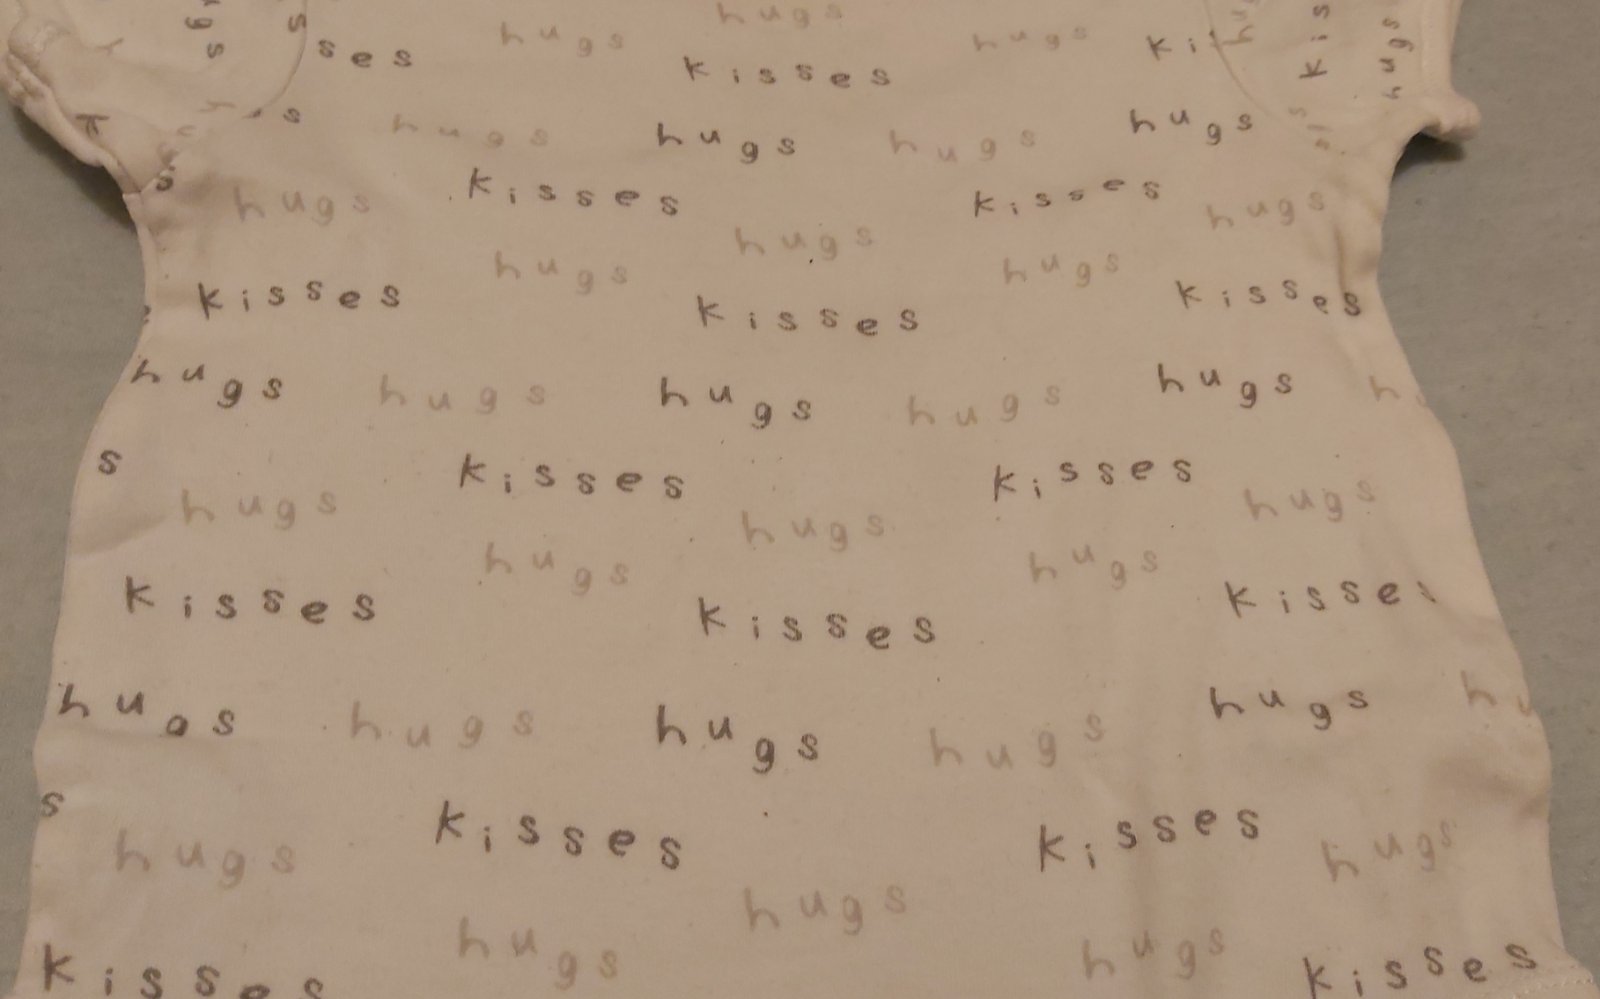 hugs
hugs hugs
kisses
hugs hugs hugs hugs
kisses kisses
hugs hugs
hugs
hugs hugs
kisses kisses kisses
hugs hugs hugs hugs hugs
kisses kisses
hugs hugs hugs
hugs hugs
kisses kisses
hugs hugs hugs hugs hugs
kisses kisses
hugs hugs
hugs
hugs hugs
kisses kisses